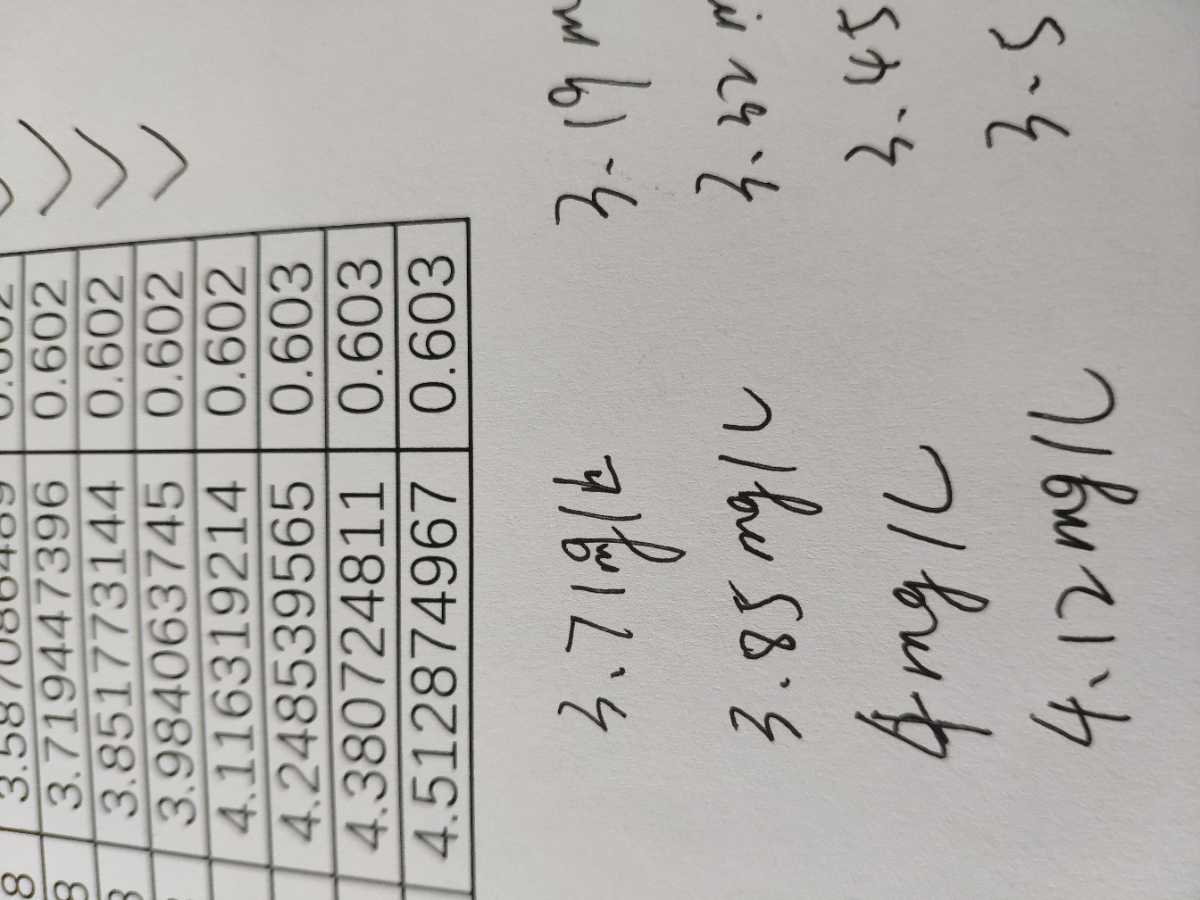 8 3.587086489 0.602
8 3.719447396 0.602
3.851773144 0.602
3.984063745 0.602
4.116319214 0.602
4.248539565 0.603
4.380724811 0.603
4.512874967 0.603
3.71mg/L 3.19
3.85mg/L 3.29
4mg/L 3.45
4.12mg/L 3.5